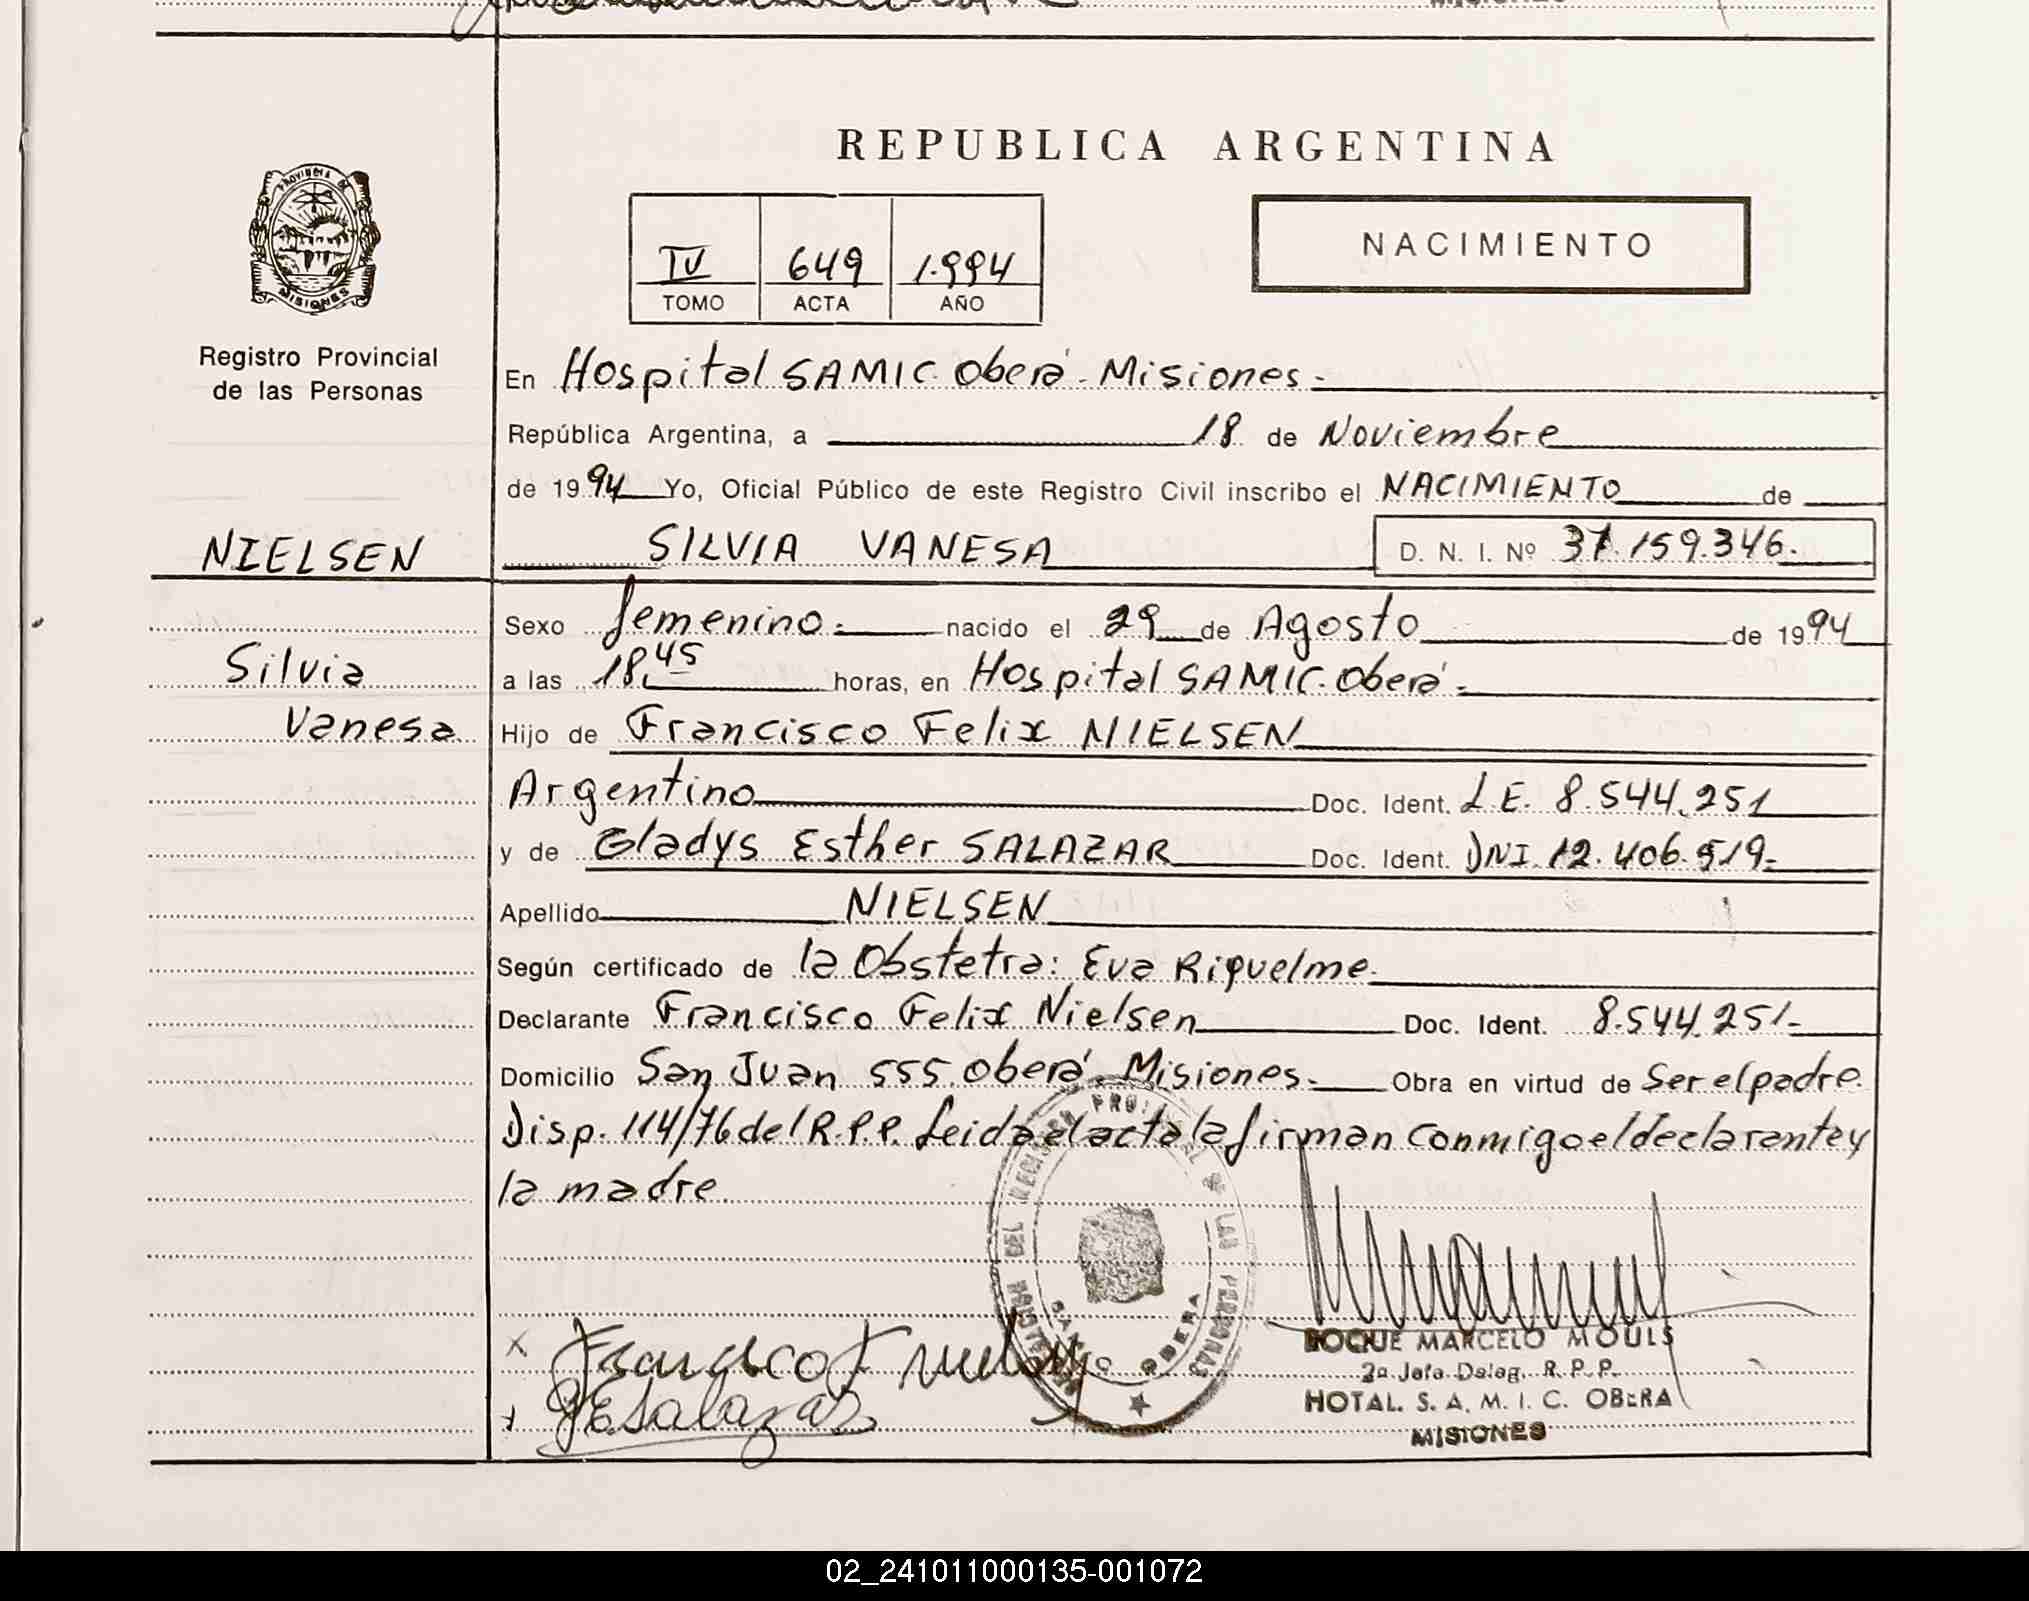 REPUBLICA ARGENTINA
PROVINCIA DE
MISIONES
Registro Provincial
de las Personas
IV 649 1.994
TOMO ACTA AÑO
NACIMIENTO
En Hospital SAMIC. Oberá. Misiones.
República Argentina, a 18 de Noviembre
de 1994 Yo, Oficial Público de este Registro Civil inscribo el NACIMIENTO de
NIELSEN
SILVIA VANESA D. N. I. Nº 37.159.346.
Sexo femenino. nacido el 29 de Agosto de 1994
Silvia
a las 18.45 horas, en Hospital SAMIC. Oberá.
Vanesa
Hijo de Francisco Felix NIELSEN
Argentino Doc. Ident. L.E. 8.544.251
y de Gladys Esther SALAZAR Doc. Ident. DNI 12.406.519.
Apellido NIELSEN
Según certificado de la Obstetra: Eva Riquelme.
Declarante Francisco Felix Nielsen Doc. Ident. 8.544.251.
Domicilio San Juan 555. Oberá. Misiones. Obra en virtud de Ser el padre.
Disp. 114/76 del R.P.P. Leida el acta la firman conmigo el declarante y
la madre.
DEL REGISTRO PROV. DE LAS PERSONAS
OBERA
Francisco F Nielsen
GESalazar
ROQUE MARCELO MOULS
2º Jefe Deleg. R. P. P.
HOTAL. S. A. M. I. C. OBERA
MISIONES
02_241011000135-001072